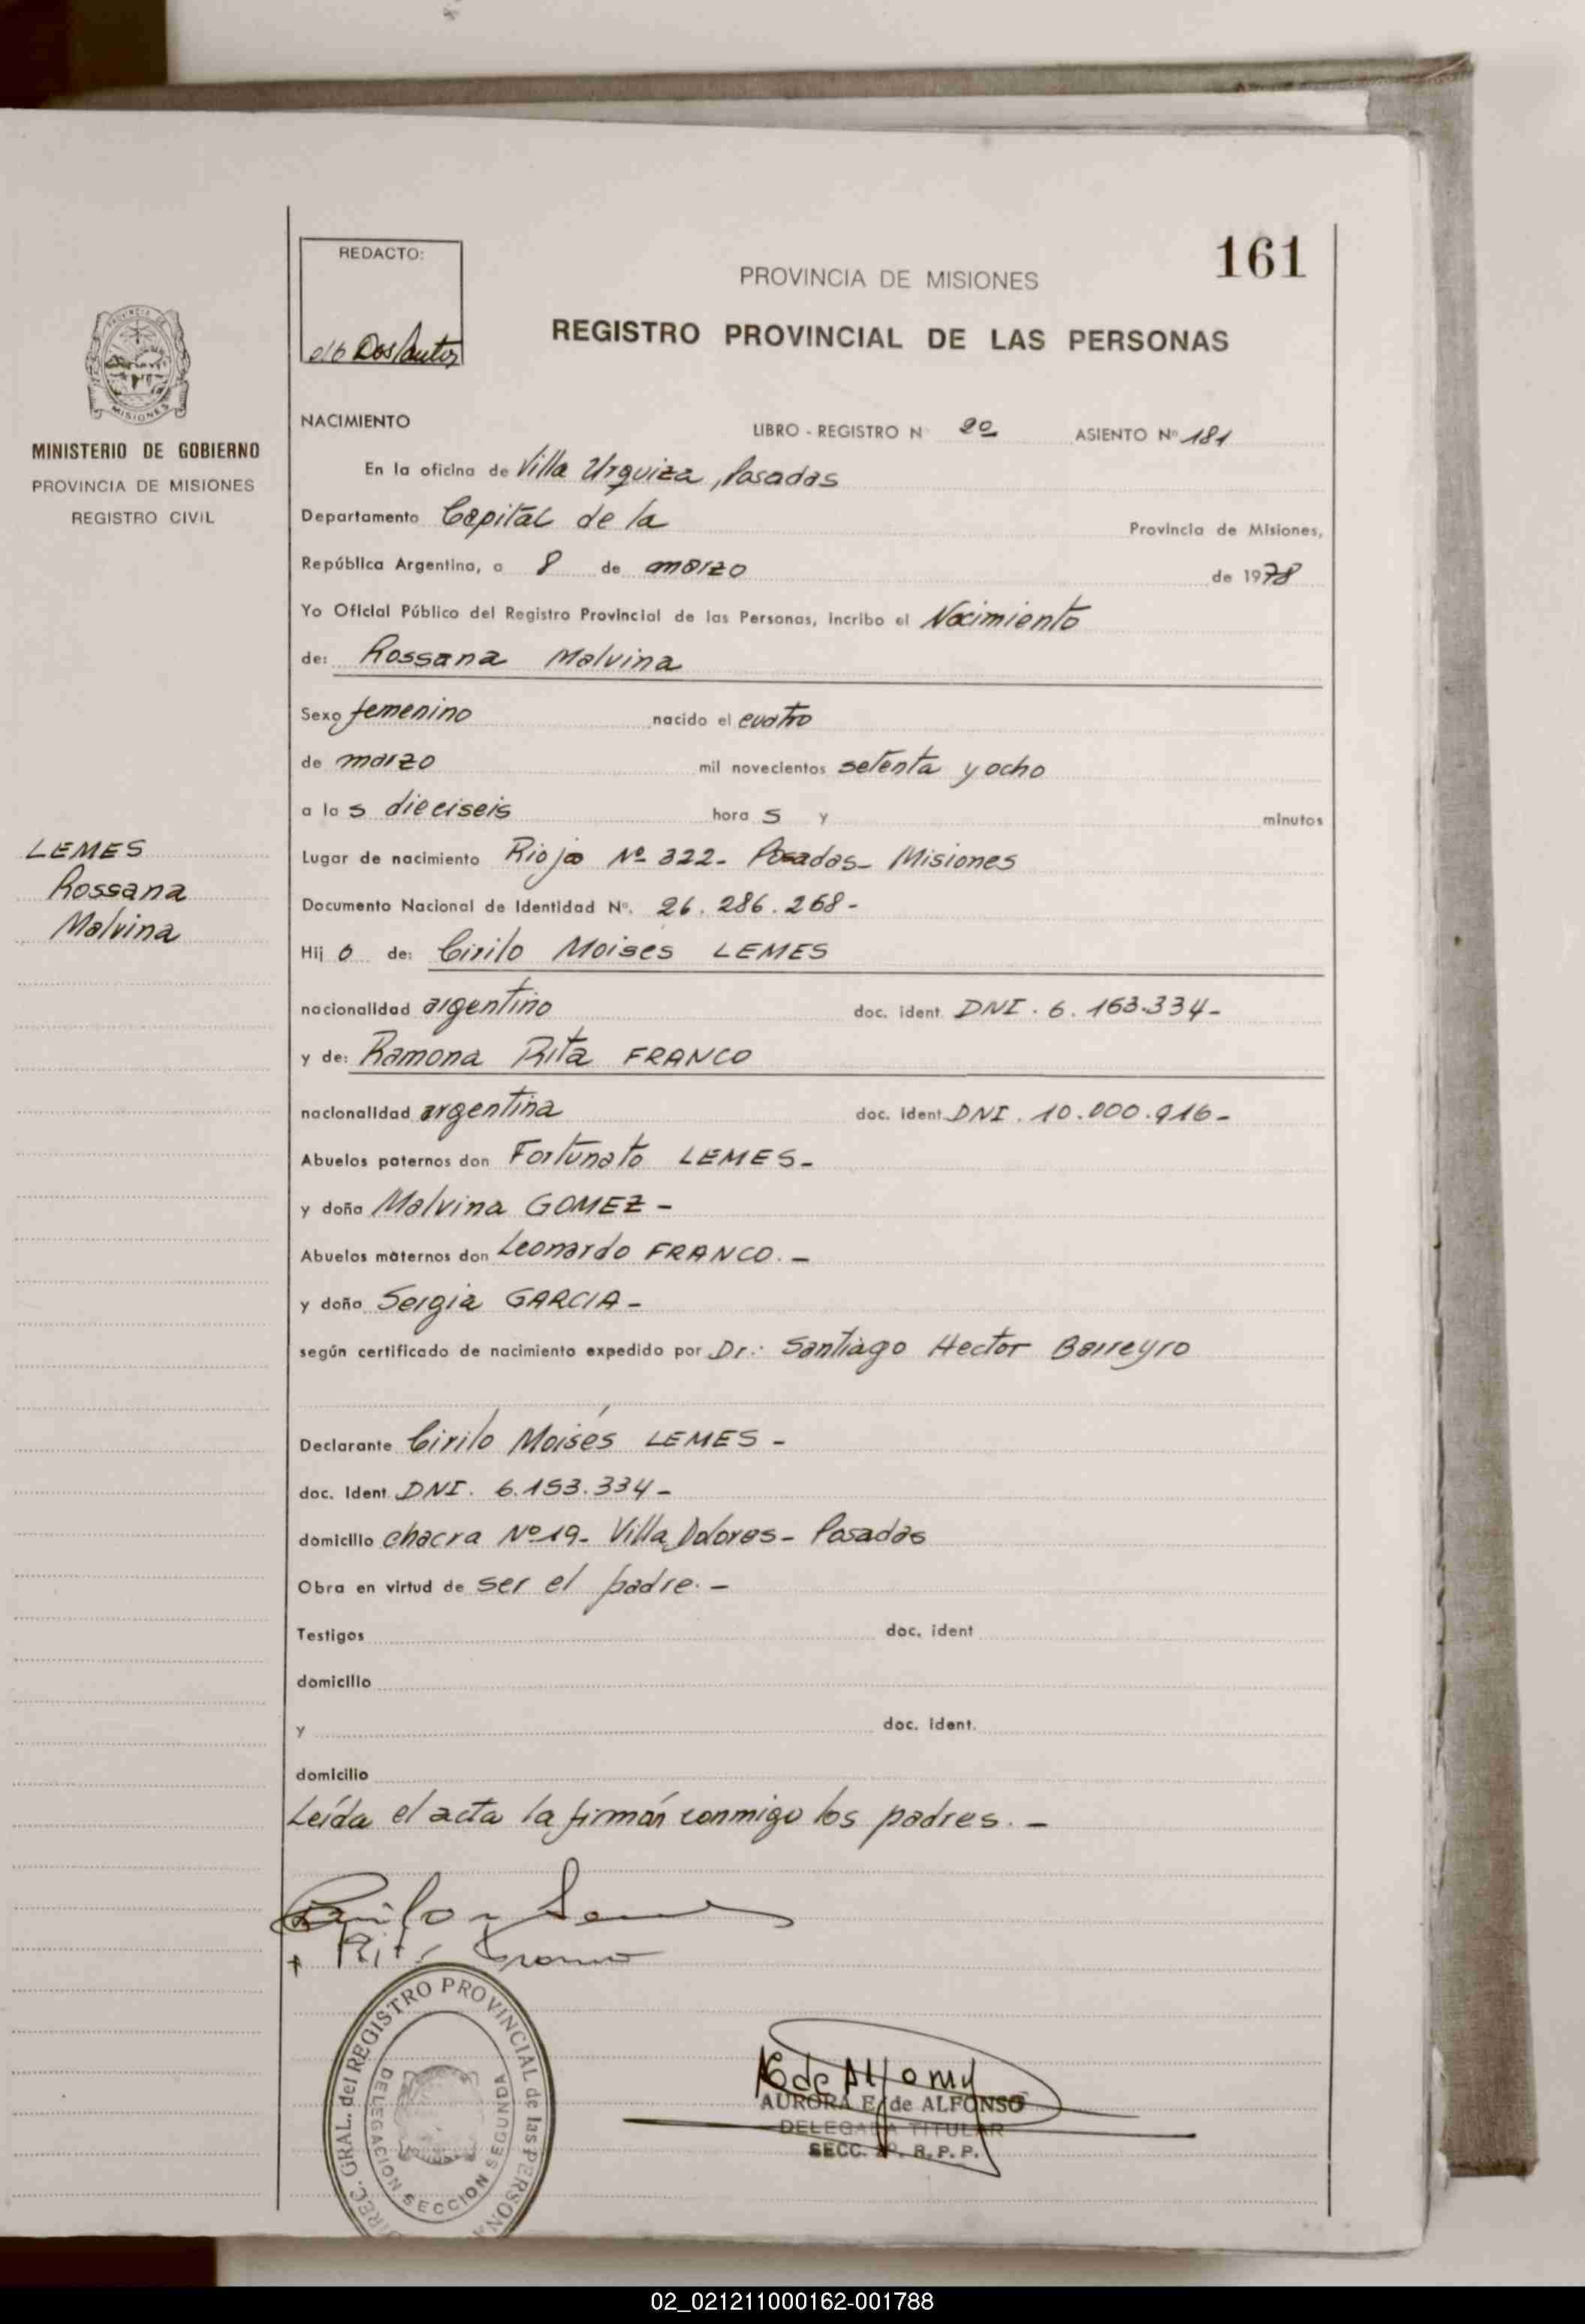 161
REDACTO:
PROVINCIA DE MISIONES
REGISTRO PROVINCIAL DE LAS PERSONAS
MINISTERIO DE GOBIERNO
PROVINCIA DE MISIONES
REGISTRO CIVIL
LEMES
Rossana
Malvina
NACIMIENTO LIBRO - REGISTRO N 2º ASIENTO Nº 181
En la oficina de Villa Urquiza, Posadas
Departamento Capital de la Provincia de Misiones,
República Argentina, a 8 de marzo de 1978
Yo Oficial Público del Registro Provincial de las Personas, incribo el Nacimiento
de: Rossana Malvina
Sexo femenino nacido el cuatro
de marzo mil novecientos setenta y ocho
a las dieciseis horas y minutos
Lugar de nacimiento Rioja Nº 322- Posadas- Misiones
Documento Nacional de Identidad Nº. 26.286.268-
Hij o de: Cirilo Moises LEMES
nacionalidad argentino doc. ident. DNI. 6.153.334-
y de: Ramona Rita FRANCO
nacionalidad argentina doc. ident. DNI. 10.000.916-
Abuelos paternos don Fortunato LEMES-
y doña Malvina GOMEZ-
Abuelos maternos don Leonardo FRANCO.-
y doña Sergia GARCIA-
según certificado de nacimiento expedido por Dr.: Santiago Hector Barreyro
Declarante Cirilo Moisés LEMES-
doc. Ident. DNI. 6.153.334-
domicilio chacra Nº 19- Villa Dolores- Posadas
Obra en virtud de ser el padre.-
Testigos doc. ident
domicilio
y doc. ident.
domicilio
Leída el acta la firmán conmigo los padres.-
DIREC. GRAL. del REGISTRO PROVINCIAL de las PERSONA
DELEGACION SECCION SEGUNDA
AURORA E. de ALFONSO
DELEGADA TITULAR
SECC. 2º. R. P. P.
02_021211000162-001788